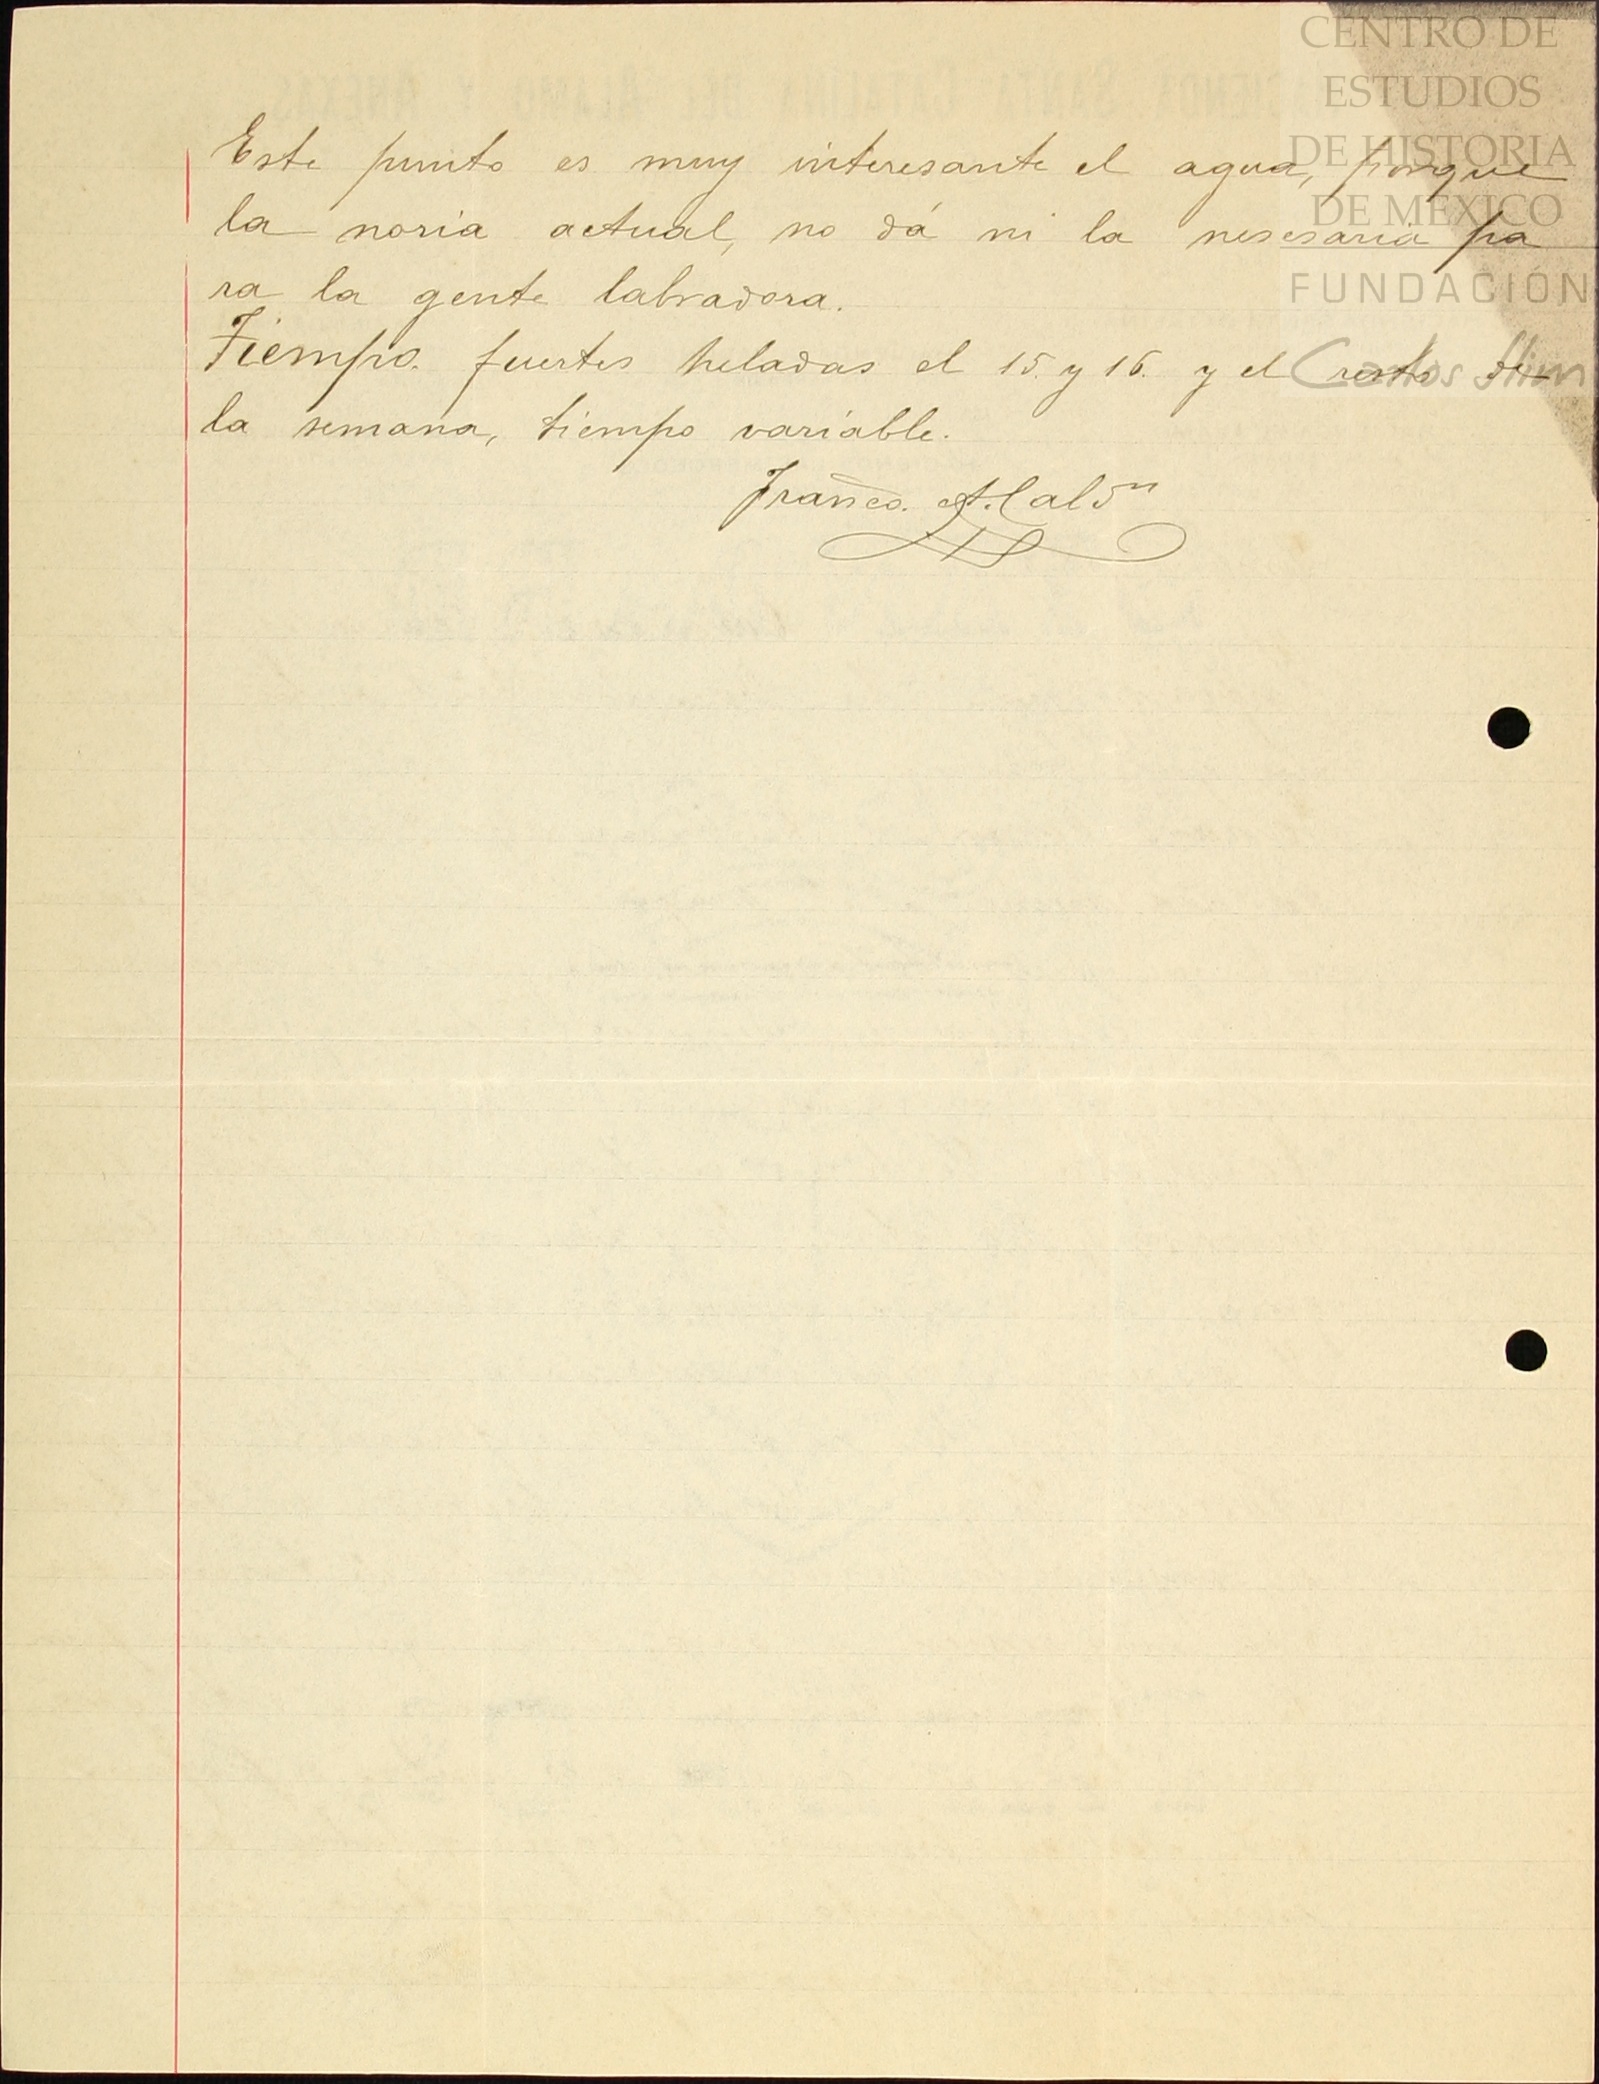 CENTRO DE
ESTUDIOS
DE HISTORIA
DE MÉXICO
FUNDACIÓN
Carlos Slim
Este punto es muy interesante el agua, porque
la noria actual, no dá ni la nesesaria pa
ra la gente labradora.
Tiempo. fuertes heladas el 15. y 16. y el resto de
la semana, tiempo variable.
Franco. A. Cald<sup>n</sup>